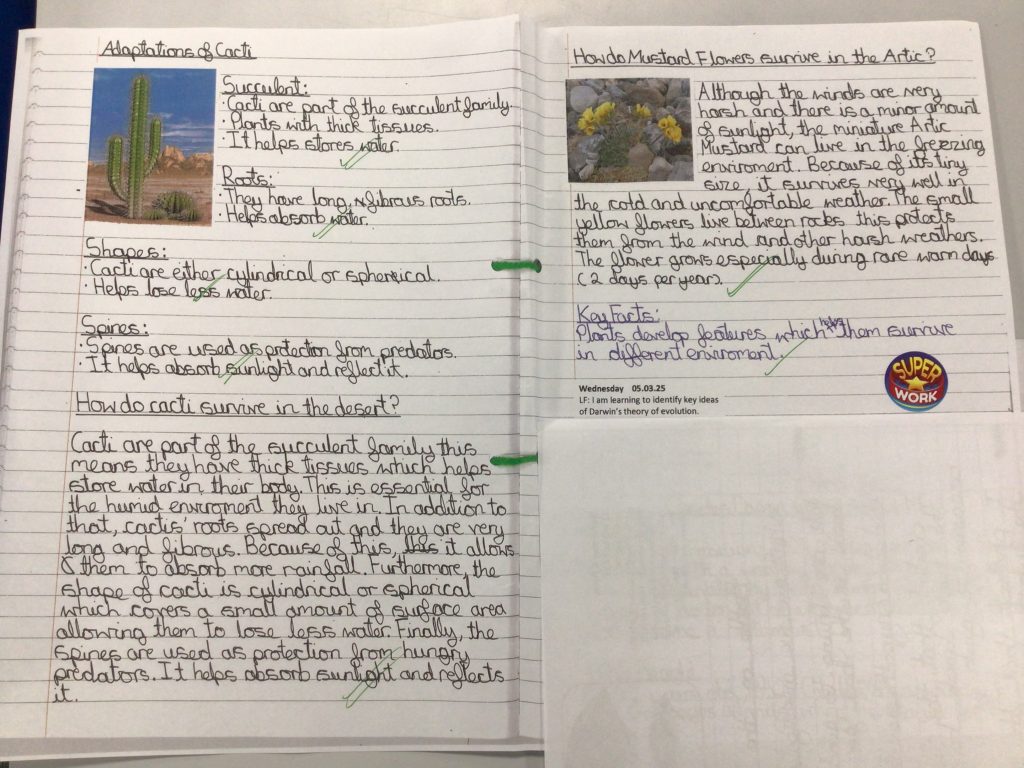 Adaptations of Cacti
Succulent:
· Cacti are part of the succulent family.
· Plants with thick tissues.
· It helps stores water.
Roots:
· They have long, fibrous roots.
· Helps absorb water.
Shapes:
· Cacti are either cylindrical or sphereical.
· Helps lose less water.
Spines:
· Spines are used as protection from predators.
· It helps absorb sunlight and reflect it.
How do cacti survive in the desert?
Cacti are part of the succulent family this
means they have thick tissues which helps
store water in their body. This is essential for
the humid enviroment they live in. In addition to
that, cactis' roots spread out and they are very
long and fibrous. Because of this, it allows
them to absorb more rainfall. Furthermore, the
shape of cacti is cylindrical or spherical
which covers a small amount of surface area
allowing them to lose less water. Finally, the
spines are used as protection from hungry
predators. It helps absorb sunlight and reflects
it.
How do Mustard Flowers survive in the Artic?
Although the winds are very
harsh and there is a minor amount
of sunlight, the miniature Artic
Mustard can live in the freezing
enviroment. Because of its tiny
size, it survives very well in
the cold and uncomfortable weather. The small
yellow flowers live between rocks this protects
them from the wind and other harsh weathers.
The flower grows especially during rare warm days
(2 days per year).
Key Facts:
Plants develop features which helps them survive
in different enviroment.
SUPER
WORK
Wednesday 05.03.25
LF: I am learning to identify key ideas
of Darwin's theory of evolution.